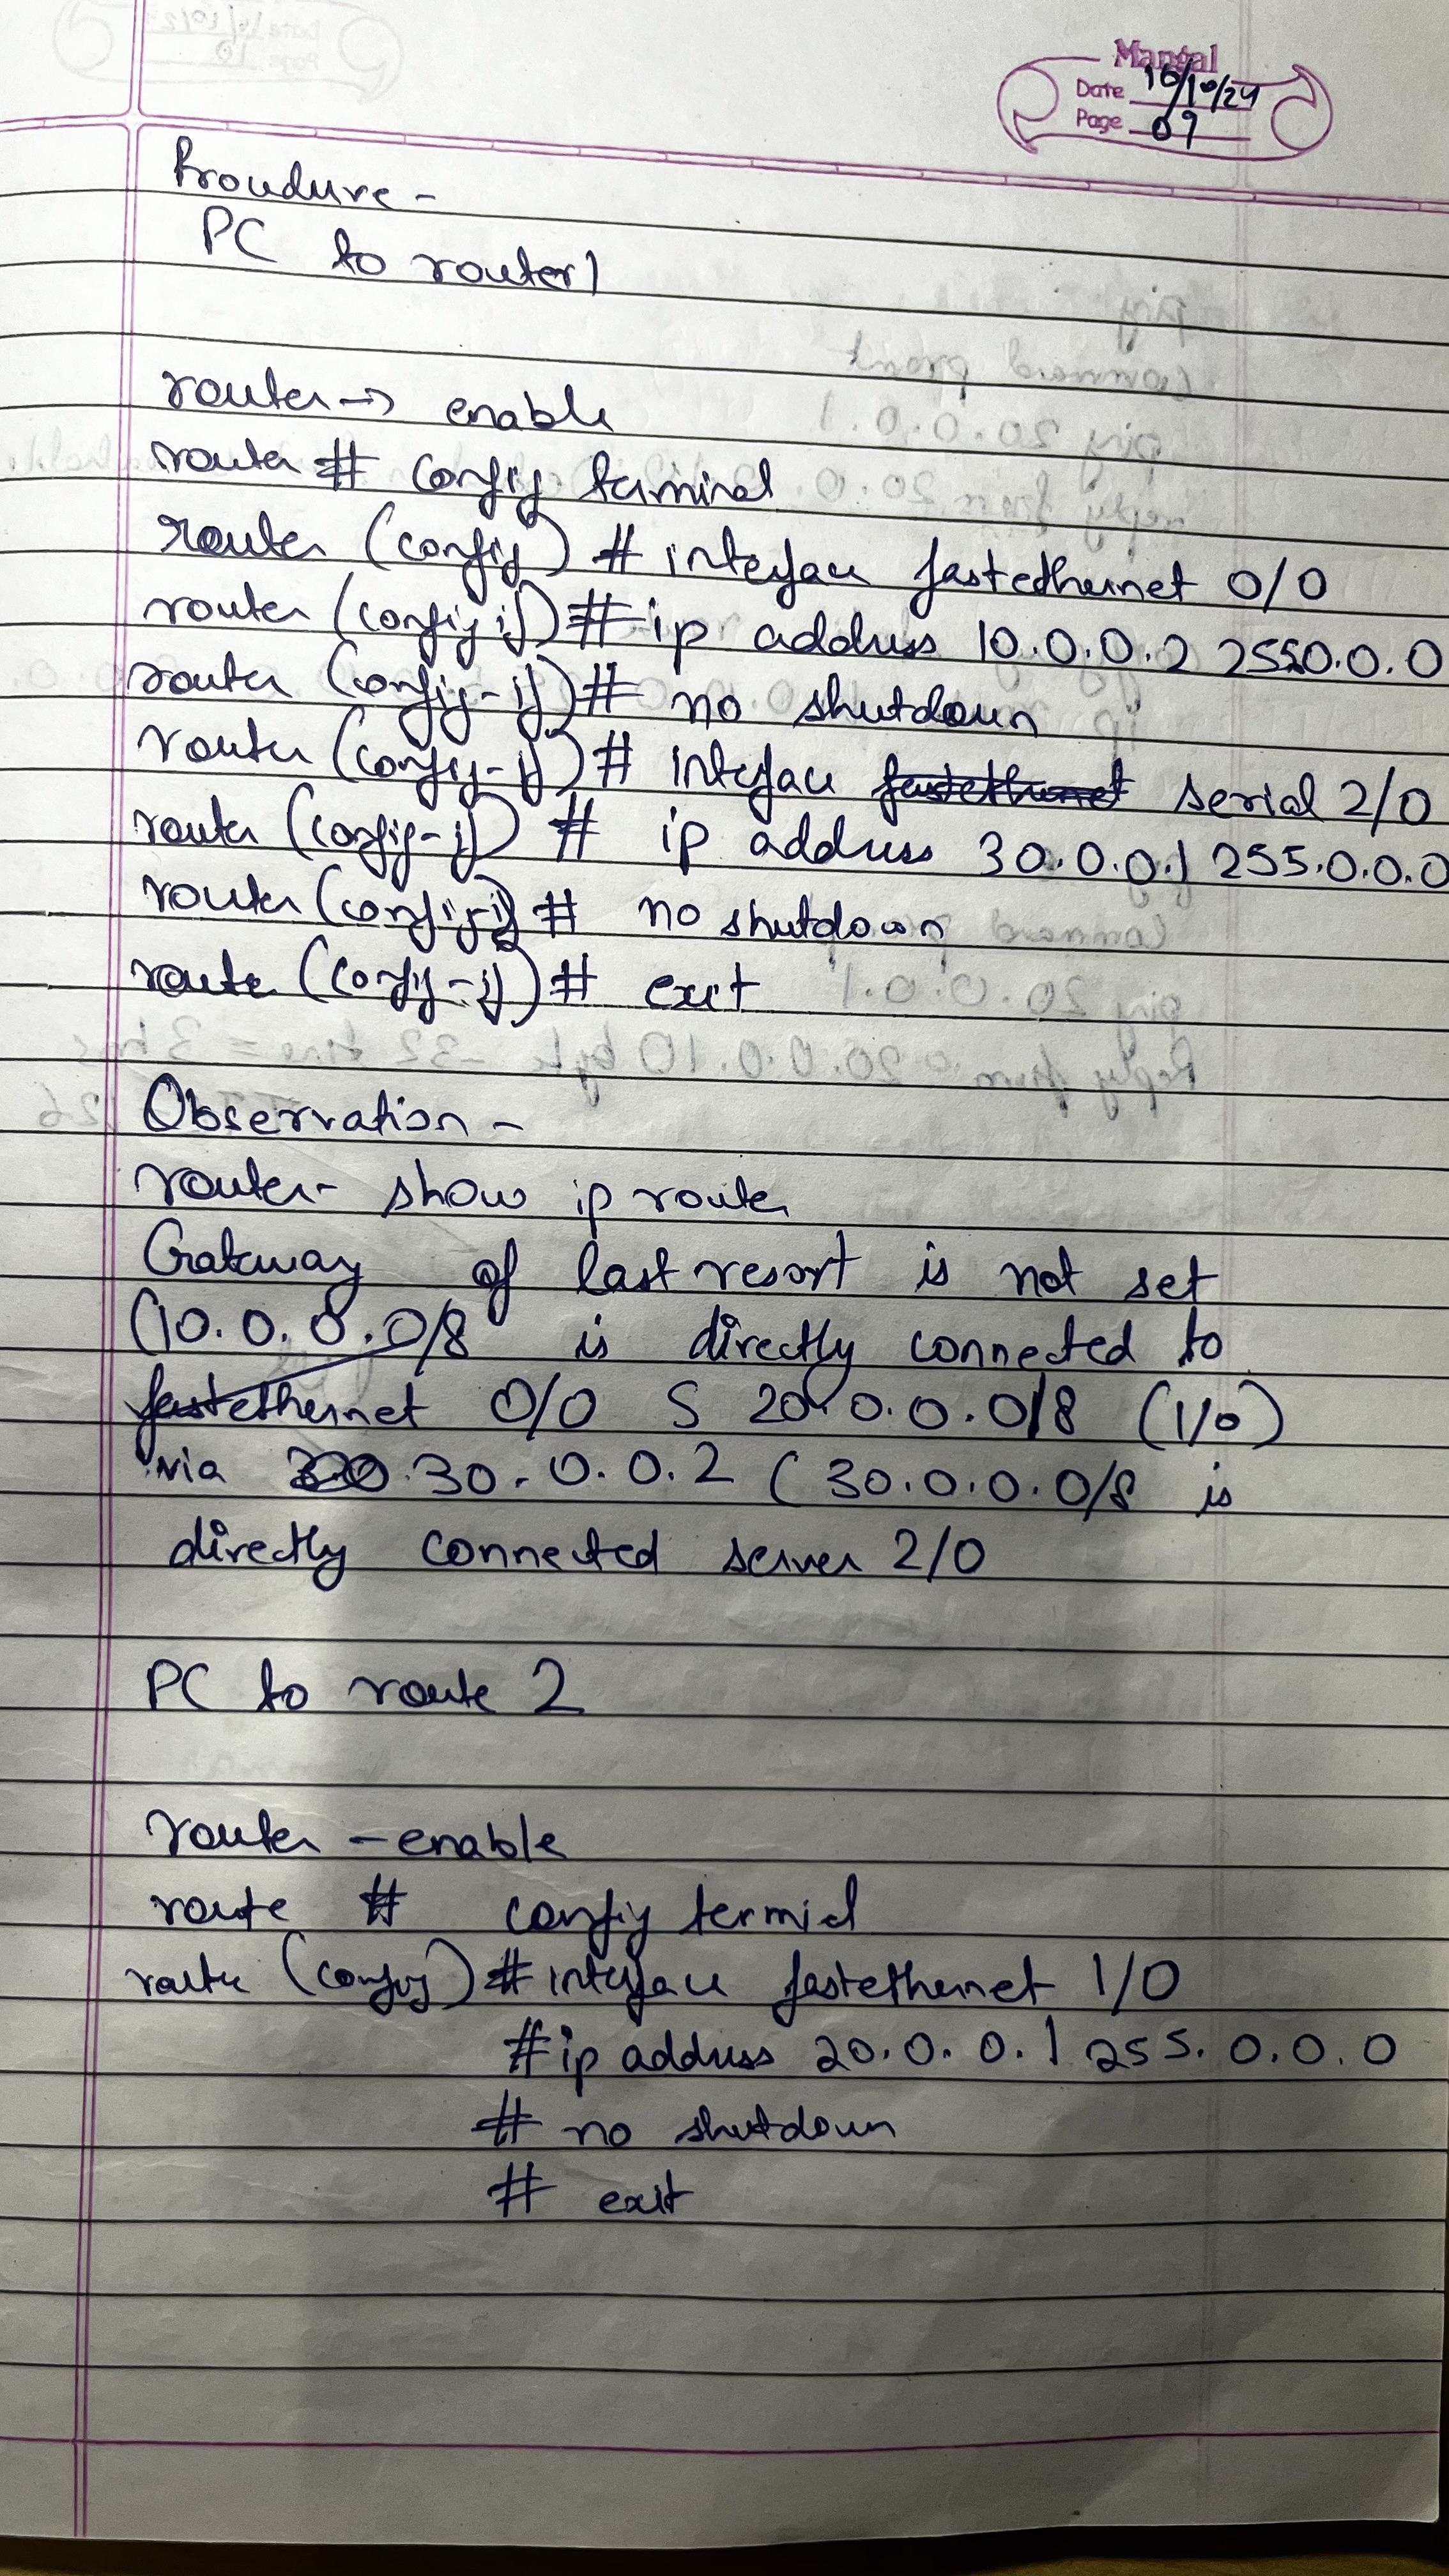 Mangal
Date 16/10/24
Page 09
Proudure -
PC to router1
router -> enable
router # config terminal
router (config) # interface fastethernet 0/0
router (config if) # ip address 10.0.0.2 2550.0.0
router (config-if) # no shutdown
router (config-if) # interface fastethernet serial 2/0
router (config-if) # ip address 30.0.0.1 255.0.0.0
router (config-if) # no shutdown
route (config-if) # exit
Observation -
router- show ip route
Gateway of last resort is not set
(10.0.0.0/8 is directly connected to
fastethernet 0/0 S 20.0.0.0/8 (1/0)
via 30.0.0.2 ( 30.0.0.0/8 is
directly connected server 2/0
PC to route 2
router - enable
route # config termial
route (config) # interface fastethernet 1/0
# ip address 20.0.0.1 255.0.0.0
# no shutdown
# exit